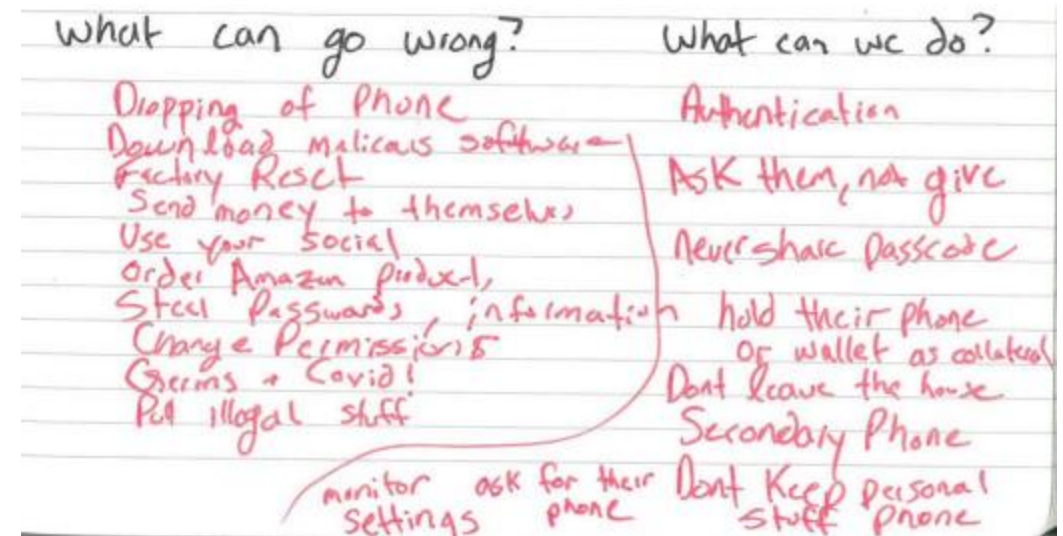 What can go wrong?
Dropping of Phone
Download malicous software
Factory Reset
Send money to themselves
Use your social
Order Amazon products,
Steal Passwords, information
Change Permissions
Germs + Covid!
Put illegal stuff
What can we do?
Authentication
Ask them, not give
Never share passcode
hold their phone
or wallet as collateral
Dont leave the house
Secondary Phone
Dont Keep personal
stuff phone
monitor
settings
ask for their
phone